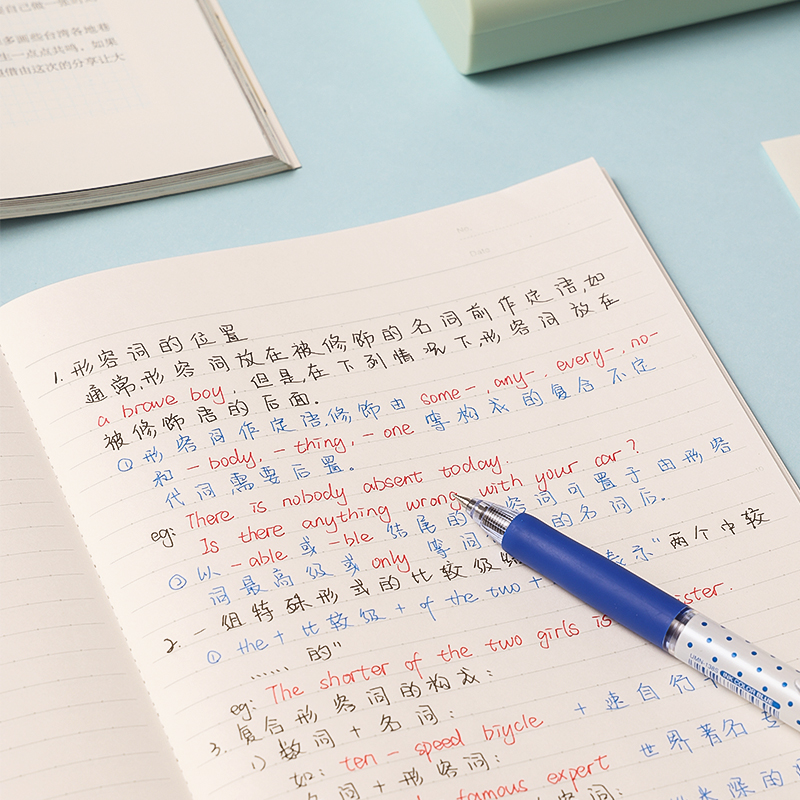 自己做一张的
多画些台湾各地巷
生一点点共鸣，如果
借由这次的分享让大
No.
Date
1.形容词的位置
通常,形容词放在被修饰的名词前作定语,如
a brave boy, 但是,在下列情况下,形容词放在
被修饰语的后面.
①形容词作定语,修饰由 some-, any-, every-, no-
和 -body, -thing, -one 等构成的复合不定
代词需要后置。
eg: There is nobody absent today.
Is there anything wrong with your car?
②以 -able 或 -ble 结尾的 容词可置于由形容
词最高级或 only 等词 的名词后.
2.一组特殊形式的比较级
①the + 比较级 + of the two + 表示"两个中较
……的"
eg: The shorter of the two girls is ster.
3.复合形容词的构成:
1)数词 + 名词:
如: ten - speed biycle + 速自行
名词 + 形容词:
famous expert 世界著名
词:
UMN-138S INK COLOR BLUE